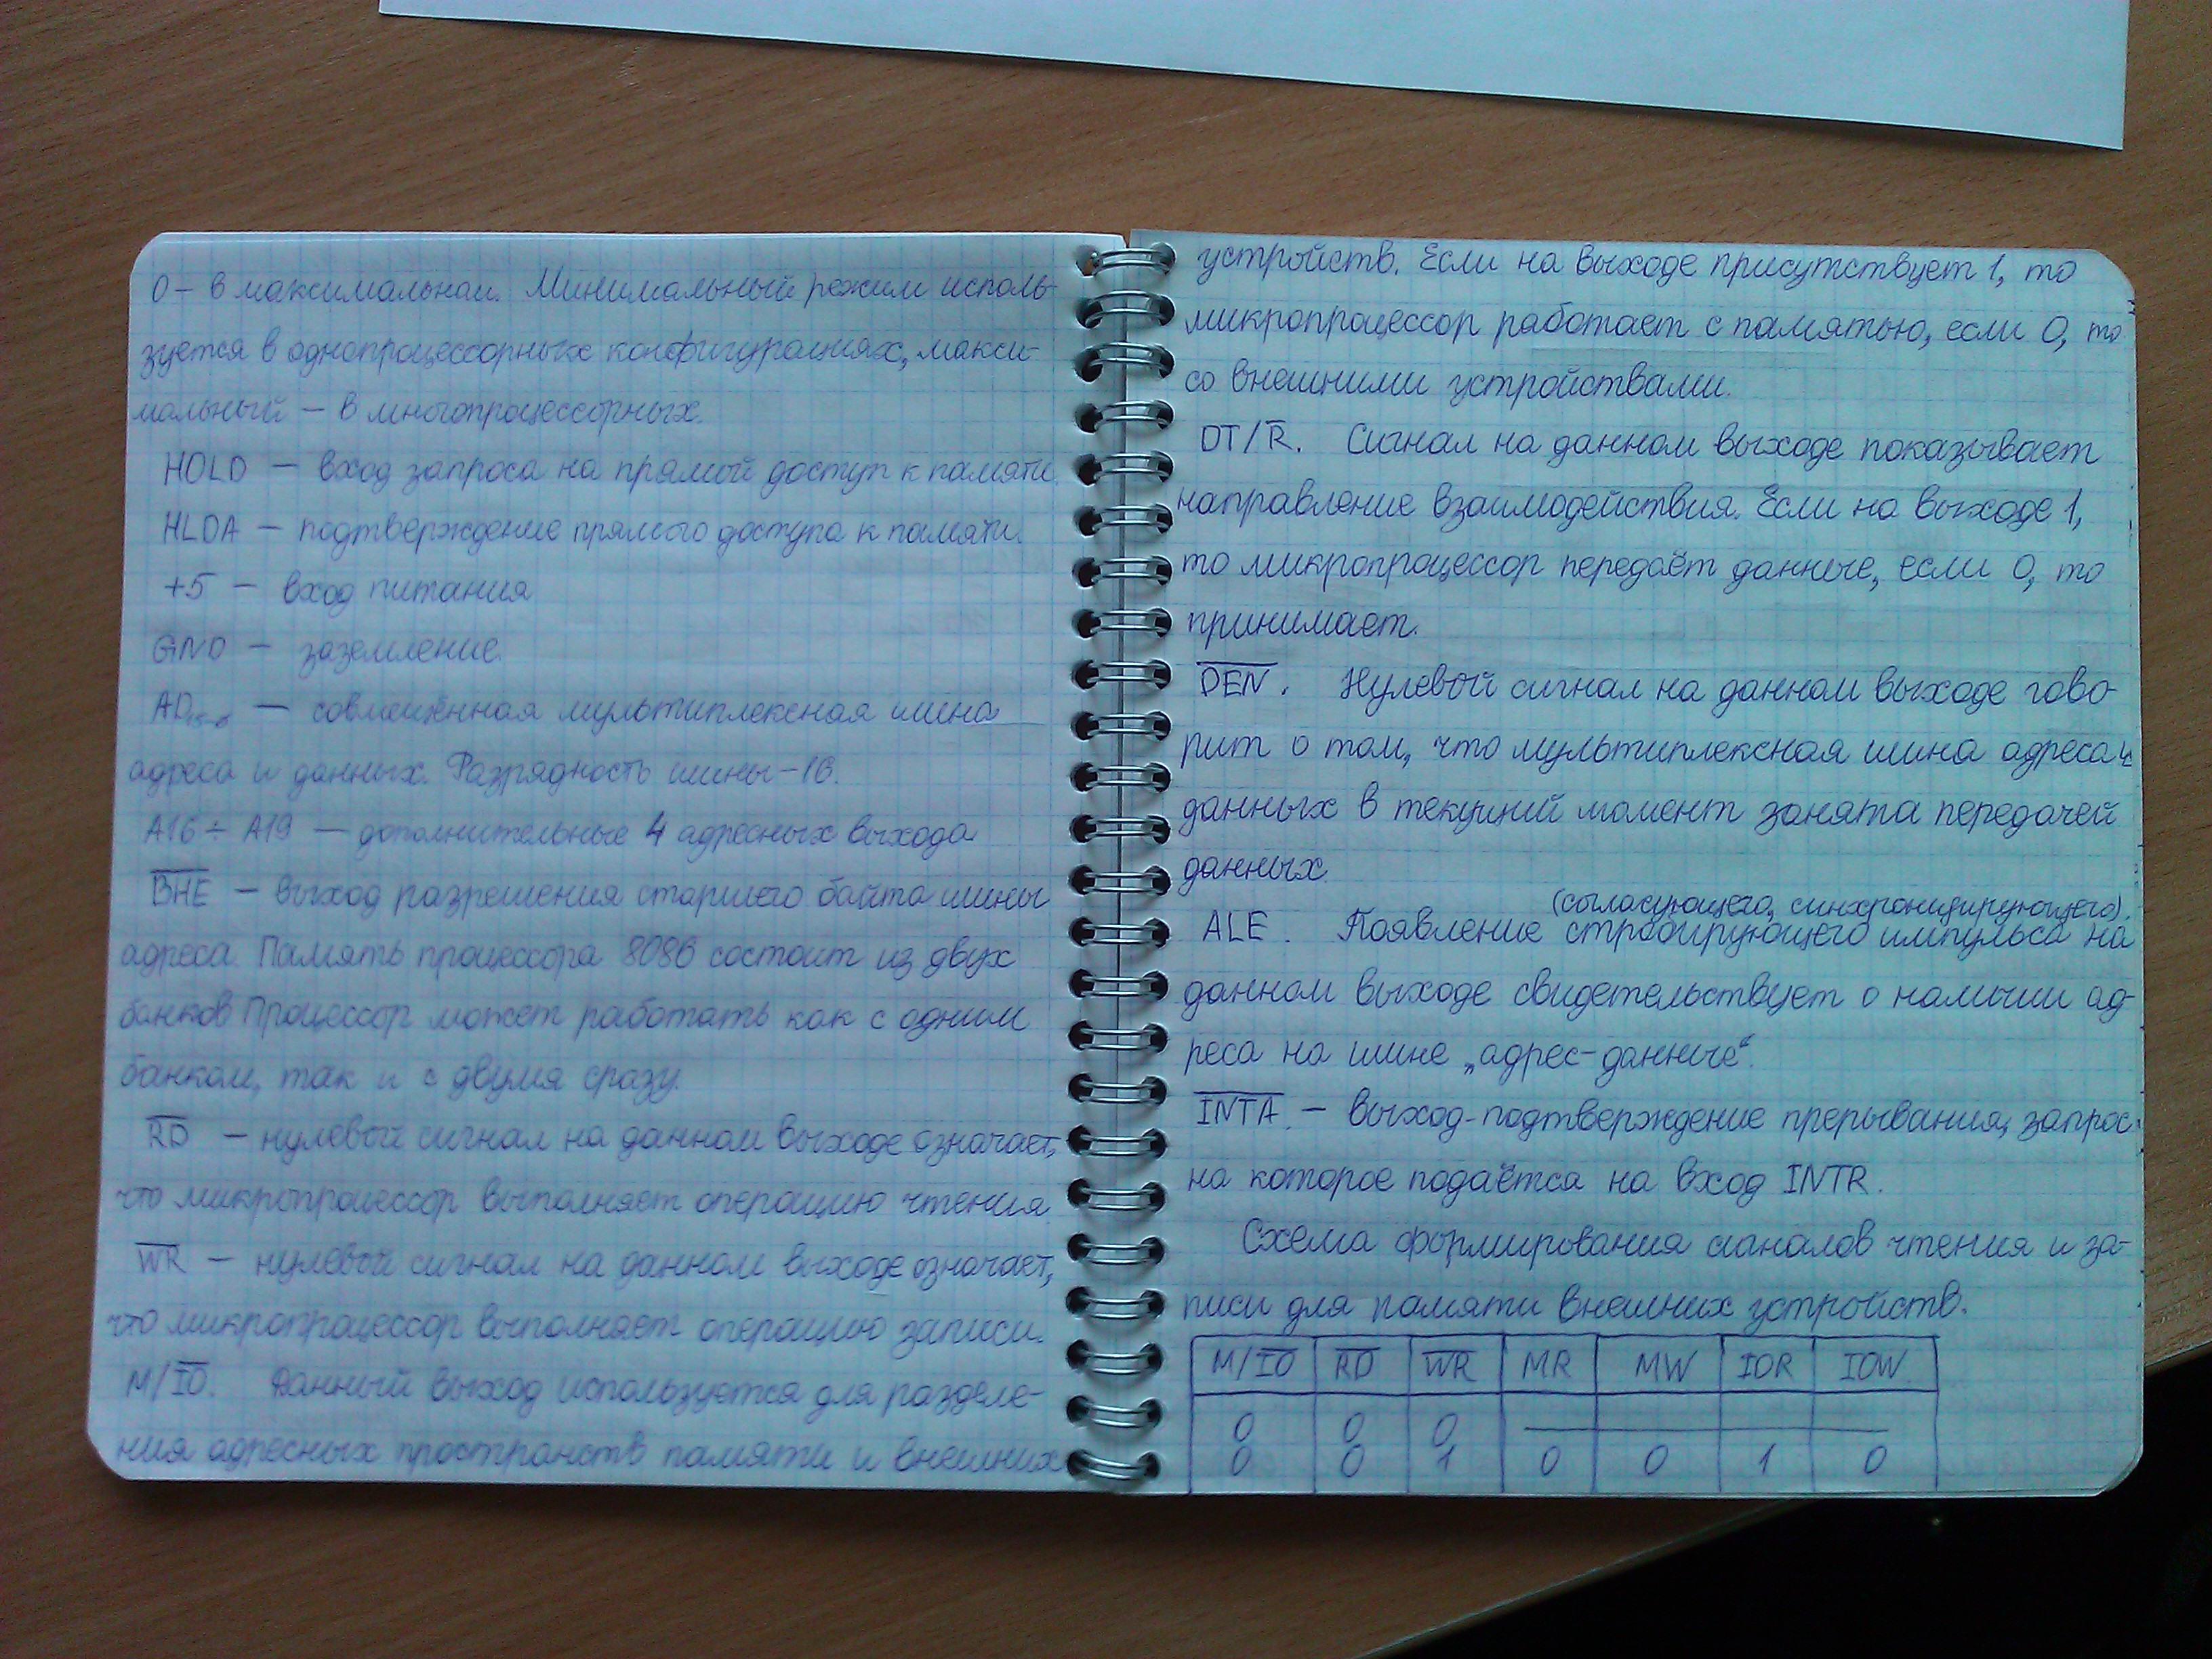 0 – в максимальном. Минимальный режим исполь-
зуется в однопроцессорных конфигурациях, макси-
мальный – в многопроцессорных.
HOLD – вход запроса на прямой доступ к памяти.
HLDA – подтверждение прямого доступа к памяти.
+5 – вход питания
GND – заземление.
AD15-0 – совмещённая мультиплексная шина
адреса и данных. Разрядность шины – 16.
A16 ÷ A19 – дополнительные 4 адресных выхода
B̅H̅E̅ – выход разрешения старшего байта шины
адреса. Память процессора 8086 состоит из двух
банков Процессор может работать как с одним
банком, так и с двумя сразу.
R̅D̅ – нулевой сигнал на данном выходе означает,
что микропроцессор выполняет операцию чтения.
W̅R̅ – нулевой сигнал на данном выходе означает,
что микропроцессор выполняет операцию записи.
M/I̅O̅. Данный выход используется для разделе-
ния адресных пространств памяти и внешних
устройств. Если на выходе присутствует 1, то
микропроцессор работает с памятью, если 0, то
со внешними устройствами.
DT/R̅. Сигнал на данном выходе показывает
направление взаимодействия. Если на выходе 1,
то микропроцессор передаёт данные, если 0, то
принимает.
D̅E̅N̅. Нулевой сигнал на данном выходе гово-
рит о том, что мультиплексная шина адреса и
данных в текущий момент занята передачей
данных.
(согласующего, синхронизирующего).
ALE. Появление стробирующего импульса на
данном выходе свидетельствует о наличии ад-
реса на шине „адрес-данные“.
I̅N̅T̅A̅. – выход-подтверждение прерывания, запрос
на которое подаётся на вход INTR.
Схема формирования сигналов чтения и за-
писи для памяти внешних устройств.
M/I̅O̅ R̅D̅ W̅R̅ MR MW IOR IOW
0 0 0 —
0 0 1 0 0 1 0